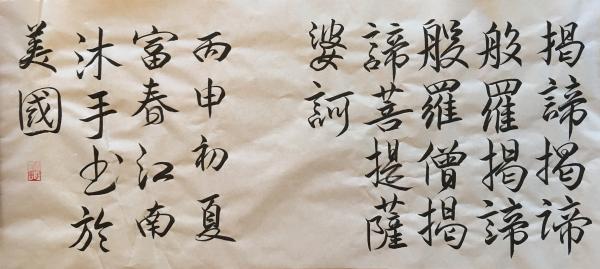 揭諦揭諦
般羅揭諦
般羅僧揭
諦菩提薩
婆訶
丙申初夏
富春江南
沐手书於
美國